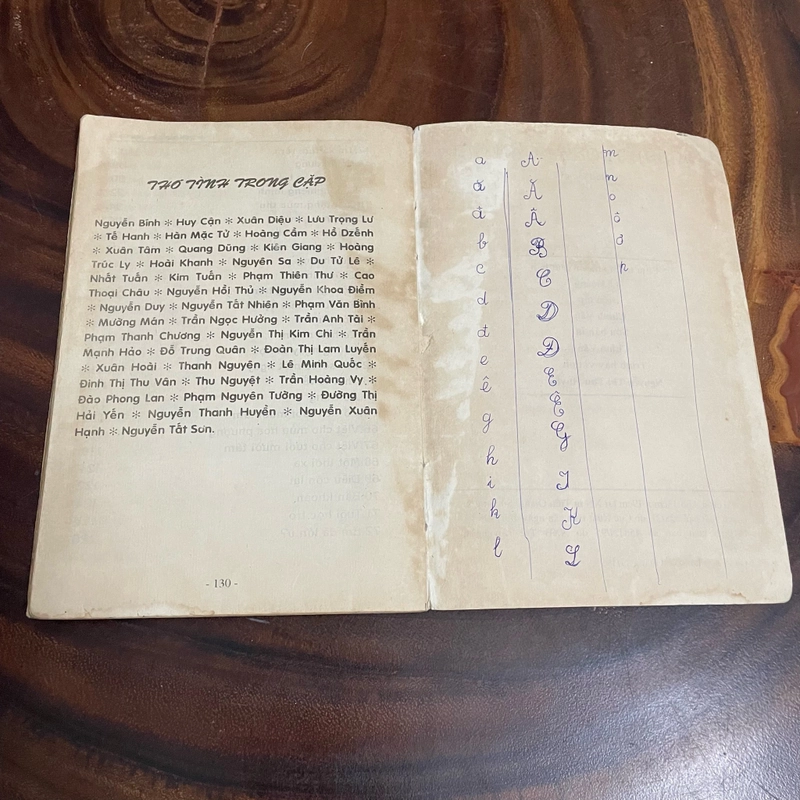 THƠ TÌNH TRONG CẶP
Nguyễn Bính ✻ Huy Cận ✻ Xuân Diệu ✻ Lưu Trọng Lư
✻ Tế Hanh ✻ Hàn Mặc Tử ✻ Hoàng Cầm ✻ Hồ Dzếnh
✻ Xuân Tâm ✻ Quang Dũng ✻ Kiên Giang ✻ Hoàng
Trúc Ly ✻ Hoài Khanh ✻ Nguyên Sa ✻ Du Tử Lê ✻
Nhất Tuấn ✻ Kim Tuấn ✻ Phạm Thiên Thư ✻ Cao
Thoại Châu ✻ Nguyễn Hồi Thủ ✻ Nguyễn Khoa Điềm
✻ Nguyễn Duy ✻ Nguyễn Tất Nhiên ✻ Phạm Văn Bình
✻ Mường Mán ✻ Trần Ngọc Hưởng ✻ Trần Anh Tài ✻
Phạm Thanh Chương ✻ Nguyễn Thị Kim Chi ✻ Trần
Mạnh Hảo ✻ Đỗ Trung Quân ✻ Đoàn Thị Lam Luyến
✻ Xuân Hoài ✻ Thanh Nguyên ✻ Lê Minh Quốc ✻
Đinh Thị Thu Vân ✻ Thu Nguyệt ✻ Trần Hoàng Vy ✻
Đào Phong Lan ✻ Phạm Nguyên Tường ✻ Đường Thị
Hải Yến ✻ Nguyễn Thanh Huyền ✻ Nguyễn Xuân
Hạnh ✻ Nguyễn Tất Sơn.
- 130 -
a A m
ă Ă n
â Â o
b B ô
c C ơ
d D p
đ Đ
e E
ê Ê
g G
h
i I
k K
l L